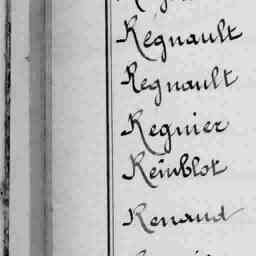 Régnault
Regnault
Regnier
Reinblot
Renaud